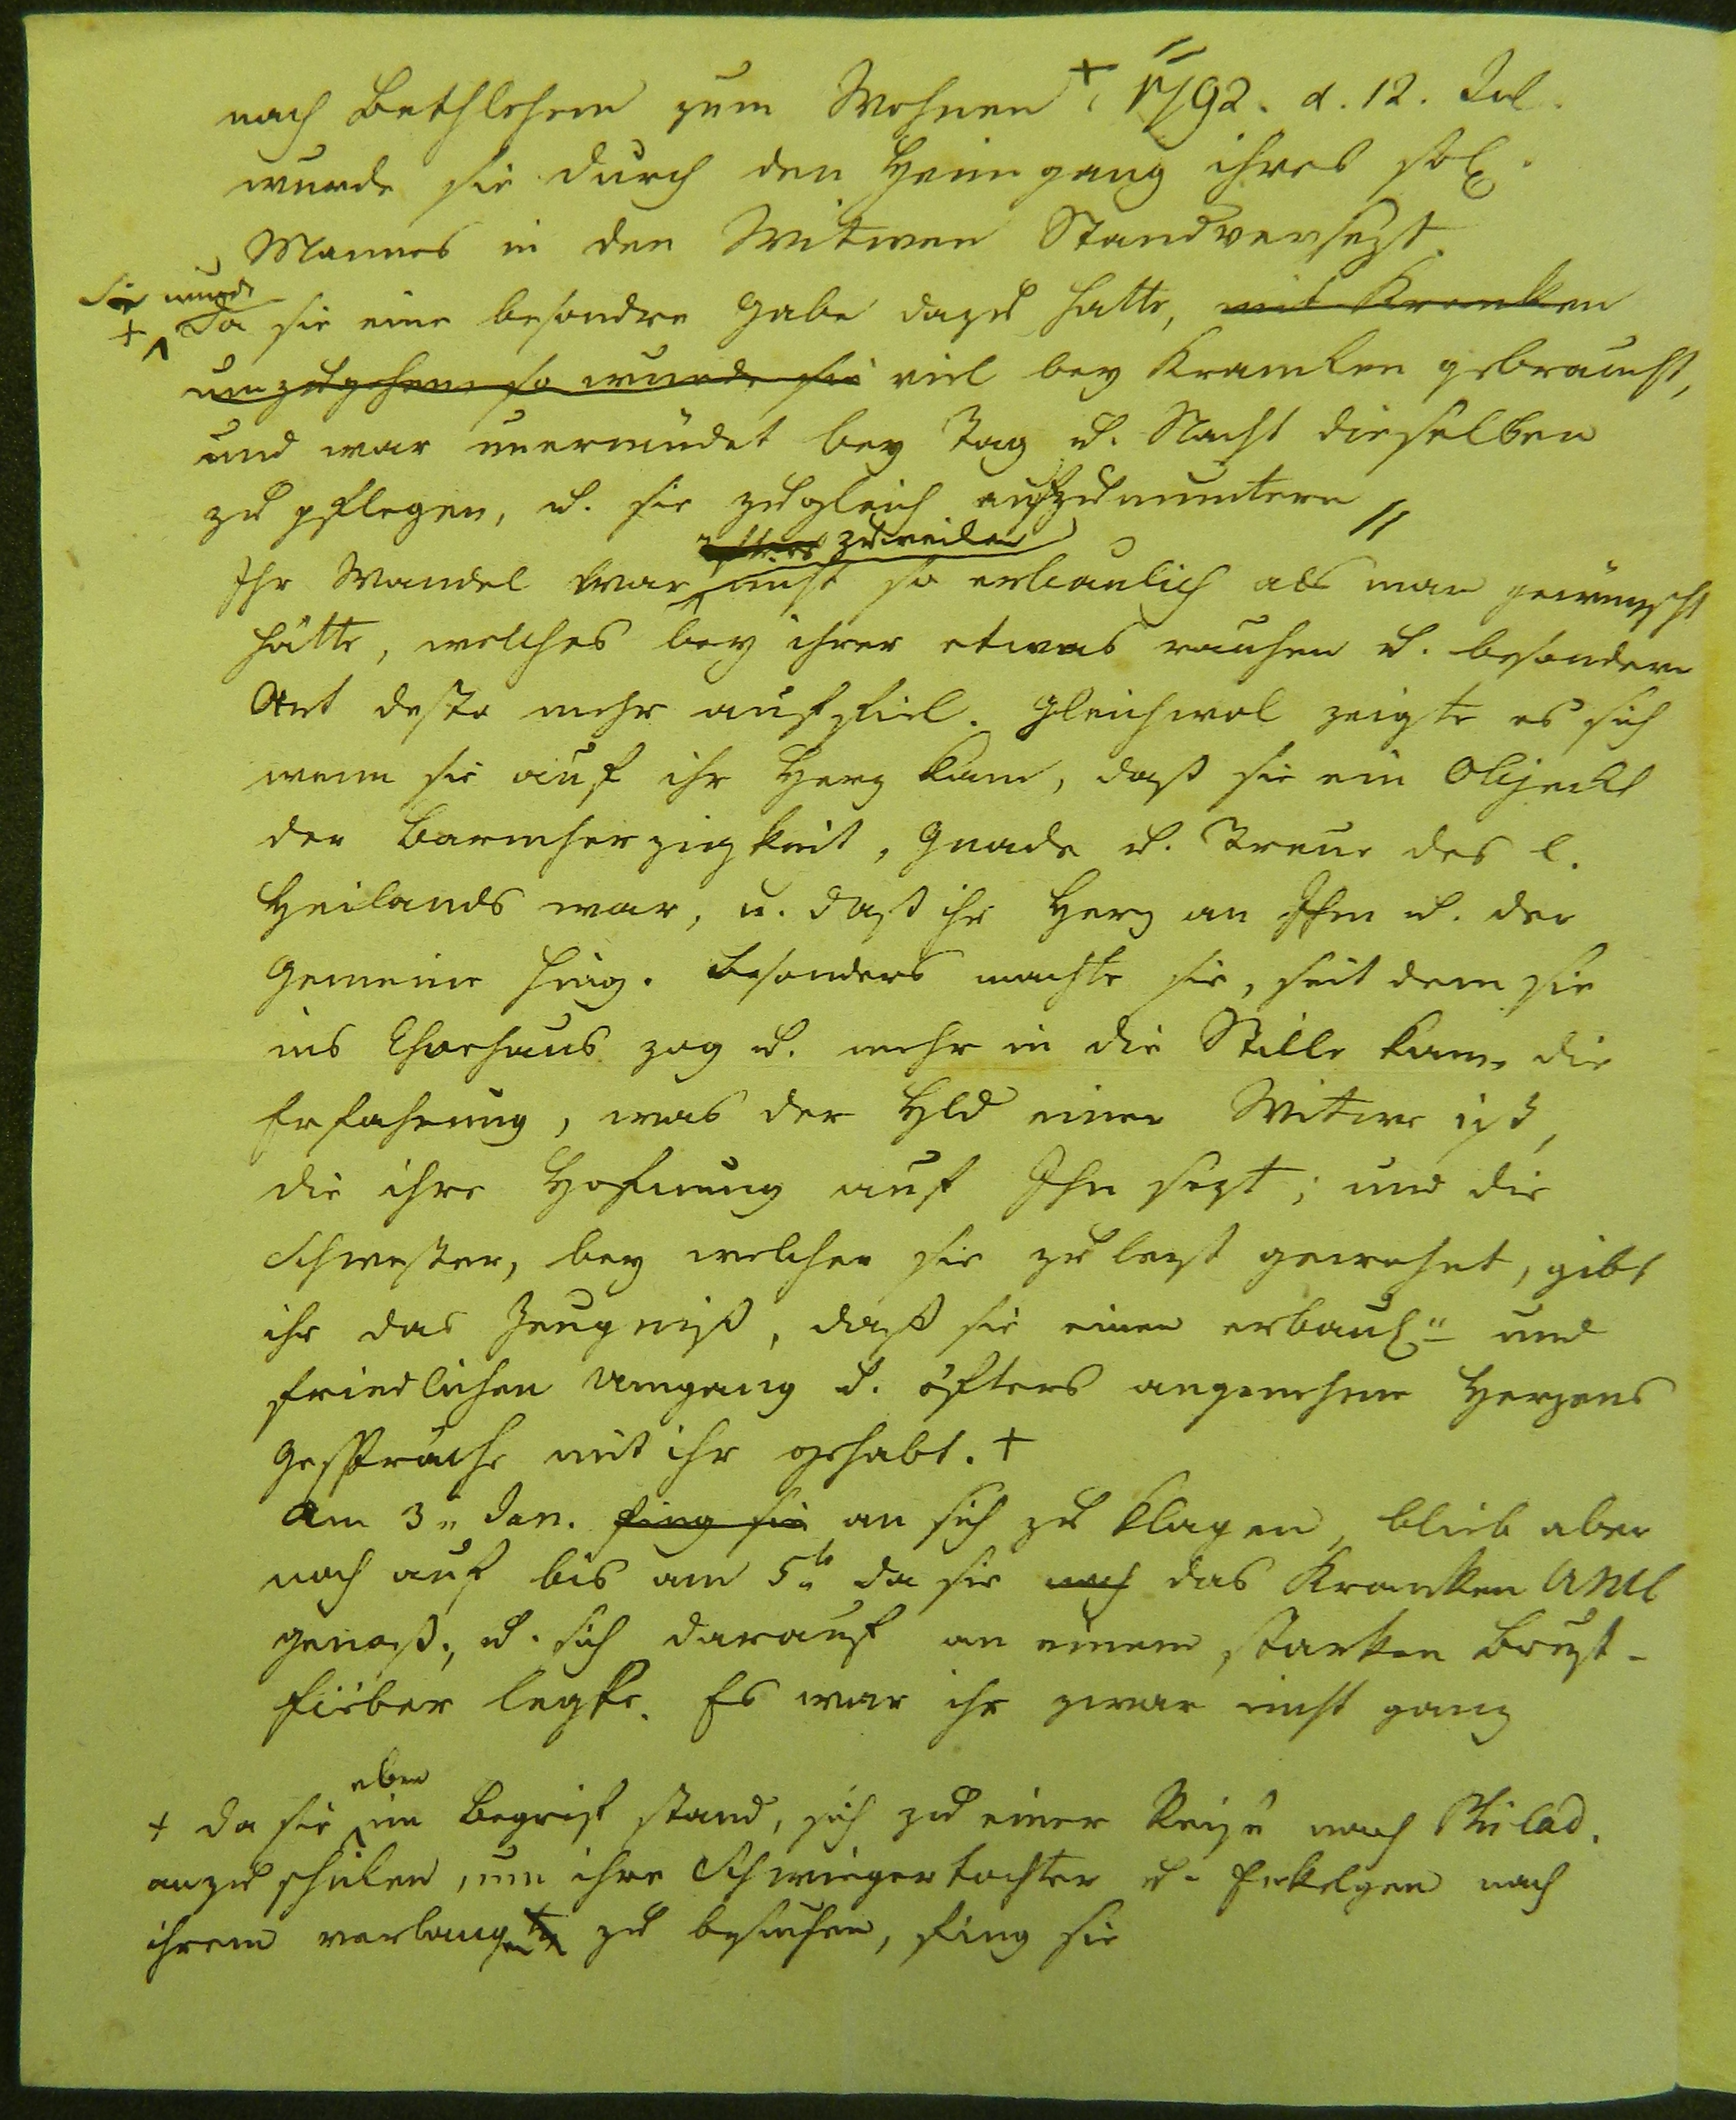 nach Bethlehem zum Wohnen + // 1792. d. 12. Jul.
wurde sie durch den Heimgang ihres sel.
Mannes in den Witwen Stand versezt.
Sie wurde
+ Da sie eine besondre Gabe dazu hatte, mit Kranken
umzugehen so wurde sie viel bey Kranken gebraucht,
und war unermüdet bey Tag u. Nacht dieselben
zu pflegen, u. sie zugleich aufzumuntern //
öfters zuweilen
Ihr Wandel war nicht so erbaulich als man gewünscht
hätte, welches bey ihrer etwas rauhen u. besondern
Art desto mehr auffiel. Gleichwol zeigte es sich
wenn sie auf ihr Herz kam, daß sie ein Objeckt
der Barmherzigkeit, Gnade u. Treue des l.
Heilands war, u. daß ihr Herz an Ihm u. der
Gemeine hing. Besonders machte sie, seit dem sie
ins Chorhaus zog u. mehr in die Stille kam, die
Erfahrung, was der Hld einer Witwe ist,
die ihre Hofnung auf Ihn sezt; und die
Schwester, bey welcher sie zulezt gewohnt, gibt
ihr das Zeugniß, daß sie einen erbaul. und
friedlichen Umgang u. öfters angenehme Herzens
Gespräche mit ihr gehabt. +
Am 3n Jan. fing sie an sich zu klagen, blieb aber
noch auf bis am 5tn da sie noch das Kranken AMl
genoß, u. sich darauf an einem starken Brust-
fieber legte. Es war ihr zwar nicht ganz
eben
+ da sie im Begrif stand, sich zu einer Reise nach Philad.
anzuschiken, um ihre Schwiegertochter u. Enkelgen nach
ihrem verlangen zu besuchen, fing sie